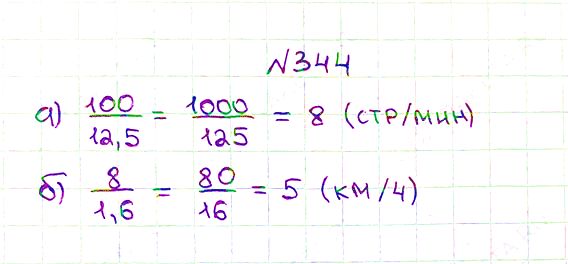 №344
а) 100/12,5 = 1000/125 = 8 (стр/мин)
б) 8/1,6 = 80/16 = 5 (км/ч)